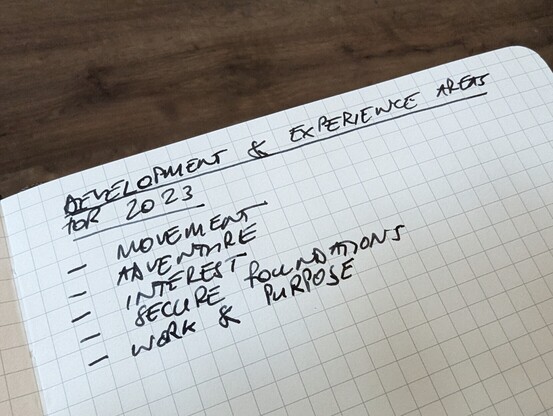 DEVELOPMENT & EXPERIENCE AREAS
FOR 2023
- MOVEMENT
- ADVENTURE
- INTEREST
- SECURE FOUNDATIONS
- WORK & PURPOSE